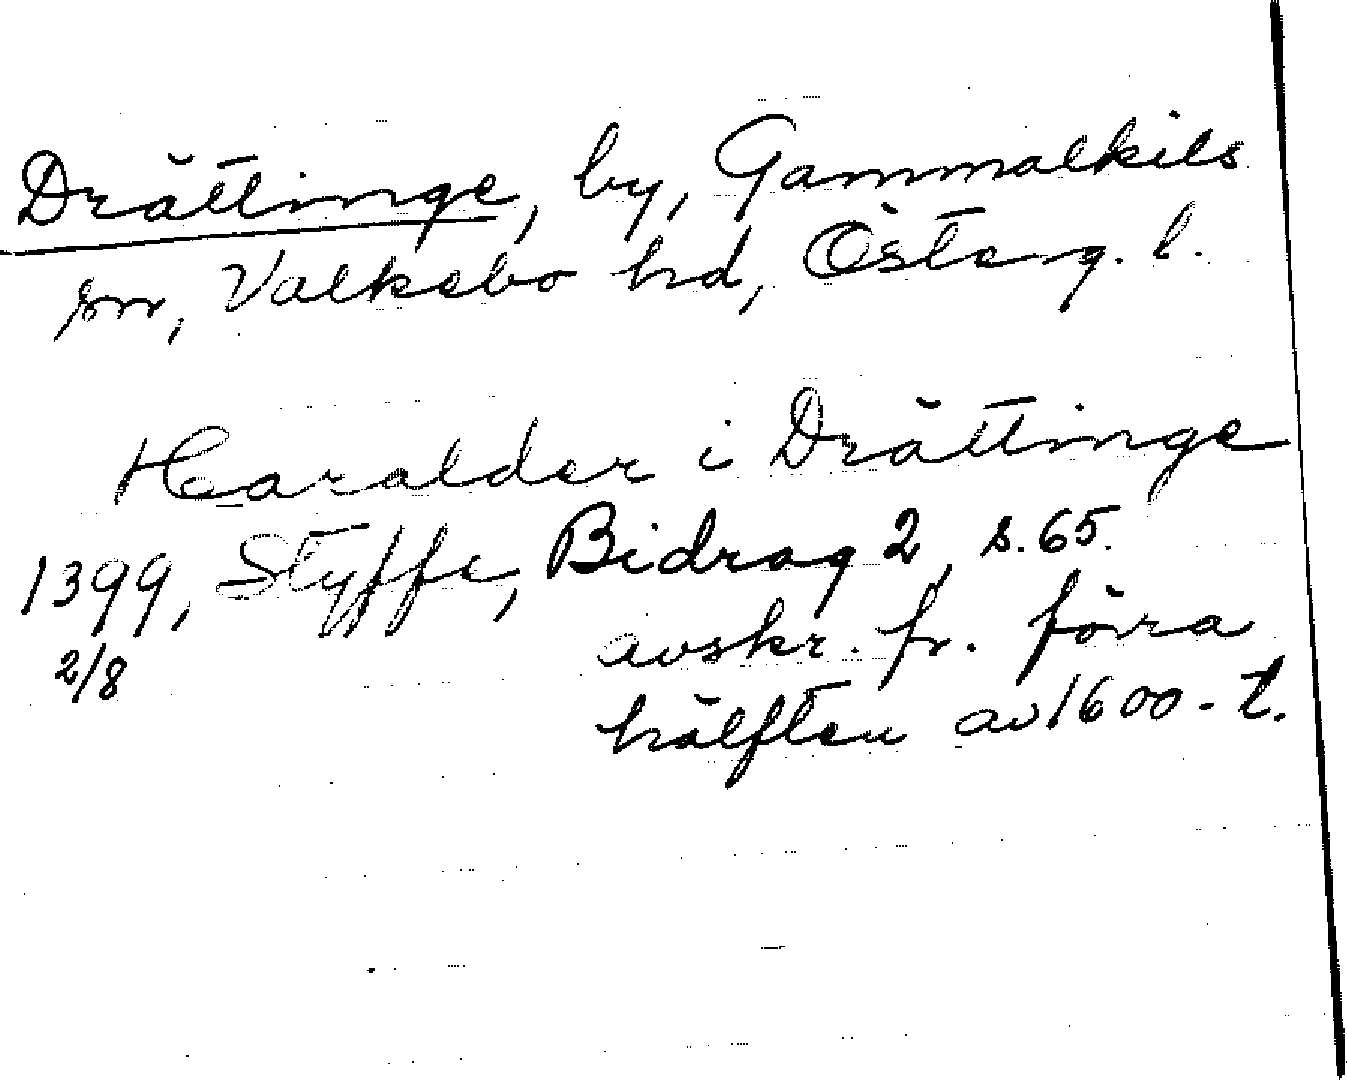 Drättinge, by, Gammalkils
sn, Valkebo hd, Österg. l.
Haralder i Drättinge
1399, Styffe, Bidrag 2, s. 65.
2/8 avskr. fr. förra
hälften av 1600-t.